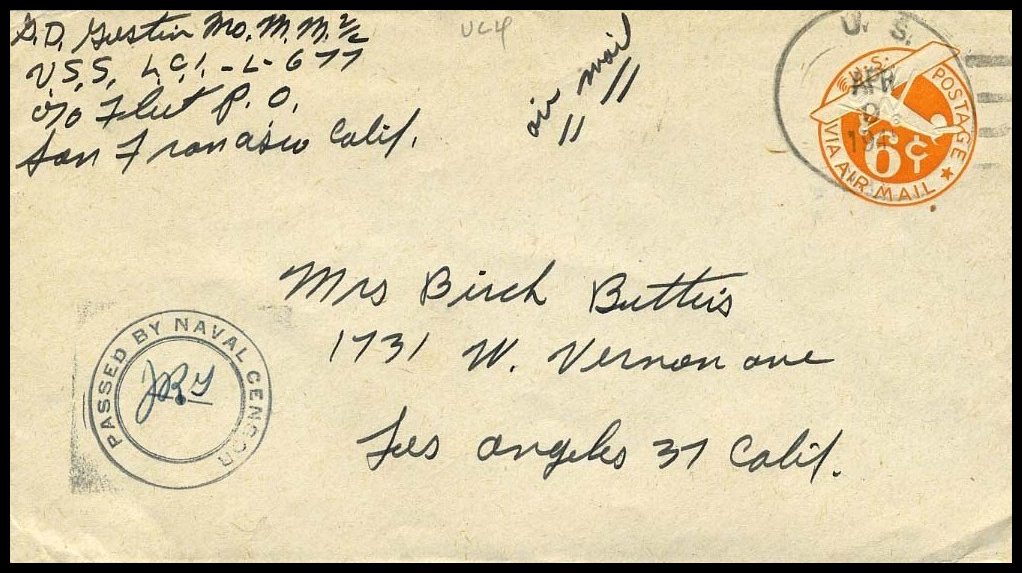 G.D. Gustin Mo.M.M. 2/c
U.S.S. L.C.I. -L- 677
c/o Fleet P.O.
San Francisco Calif.
UC4
air mail
U. S.
APR
2
194
U.S. POSTAGE
6¢
VIA AIR MAIL
Mrs Birch Butters
1731 W. Vernon ave
Los Angeles 37 Calif.
PASSED BY NAVAL CENSOR